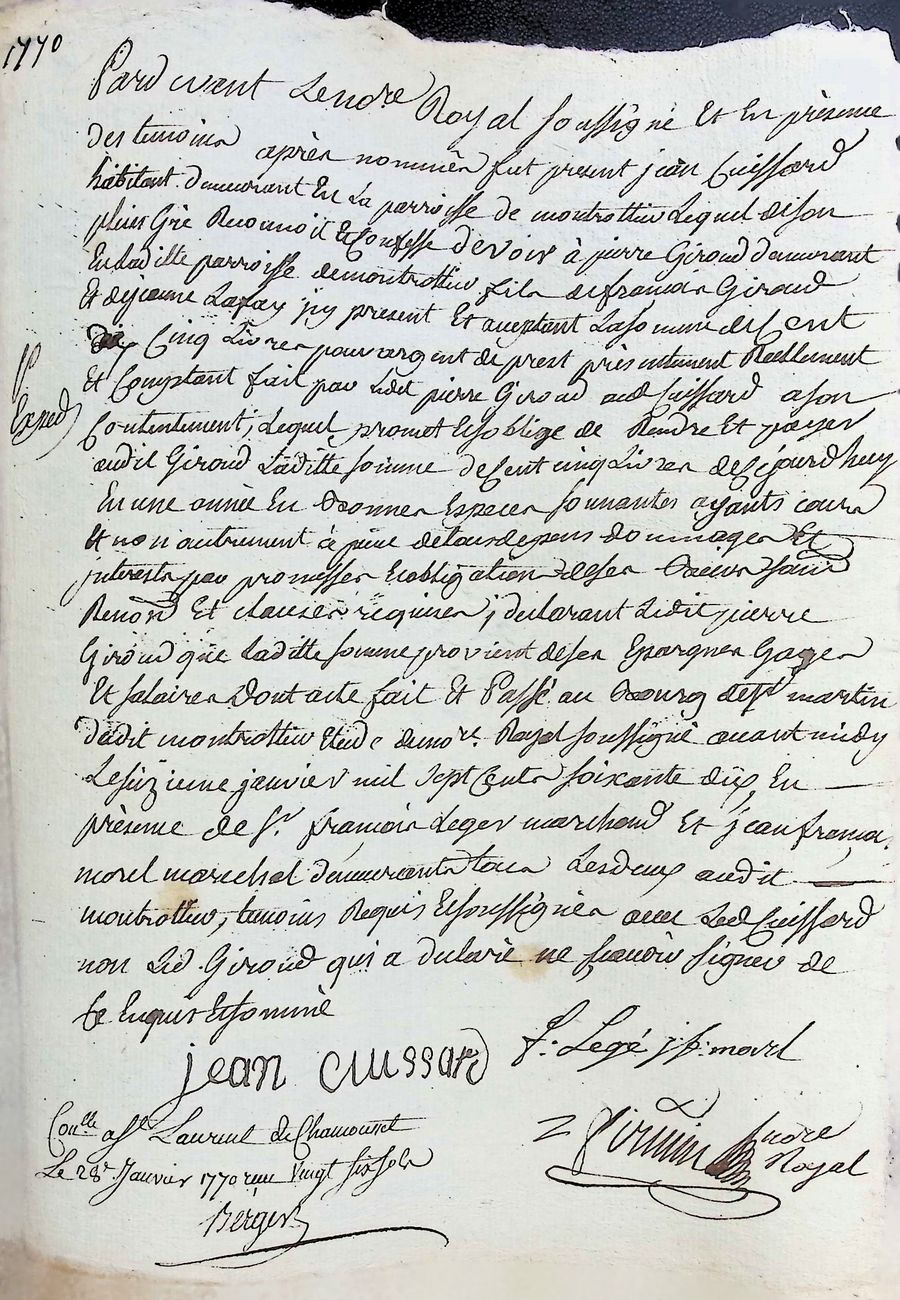 1770
Pard evant Lenore Royal soussigné Et En présence
des temoins après nommés fut present jean Cuissard
habitant demeurant En La parroisse de montrottier Lequel deson
plein Gré Reconnoit Et Confesse devoir à pierre Giroud demeurant
En Ladille parroisse demontrottier fils defrançois Giroud
Et dejeanne Lafay jcy present Et aceptant Lasomme deCent
Cinq Livres pour argent de prest présentement Reellement
Et Comptant fait par Ledt pierre Giroud aud Cuissard ason
Contentement; Lequel promet Etsoblige de Rendre Et payer
Exped
audit Giroud Laditte somme deCent cinq Livres deCejourdhuy
En une année En Bonnes Especes sonnantes ayants cours
Et non autrement à peine detousdepens dommages Et
jnterests par promesses Et obligation deses Biens sous
Renond Et clauses requises; declarant Ledit pierre
Giroud que Laditte somme provient deses Epargnes Gages
Et salaires Dont acte fait Et Passé au Bourg deSt martin
dudit montrottier Etude dunore. Royal soussigné avant midy
Leseizieme janvier mil sept Cents soixante dix, En
présence de Sr. françois Leger marchand Et jean françois
morel marechal demeurants tous Lesdeux audit
montrottier, temoins Requis Etsoussignés avec Led Cuissard
non Led Giroud qui a declaré ne sçavoir signer de
ce Enquis Etsommé
jean cuissard f: Legé j f: morel
Conllé a Ste Laurent de Chamousset
Le 28e. Janvier 1770 reçu Vingt six sols
Berger
nore
Royal